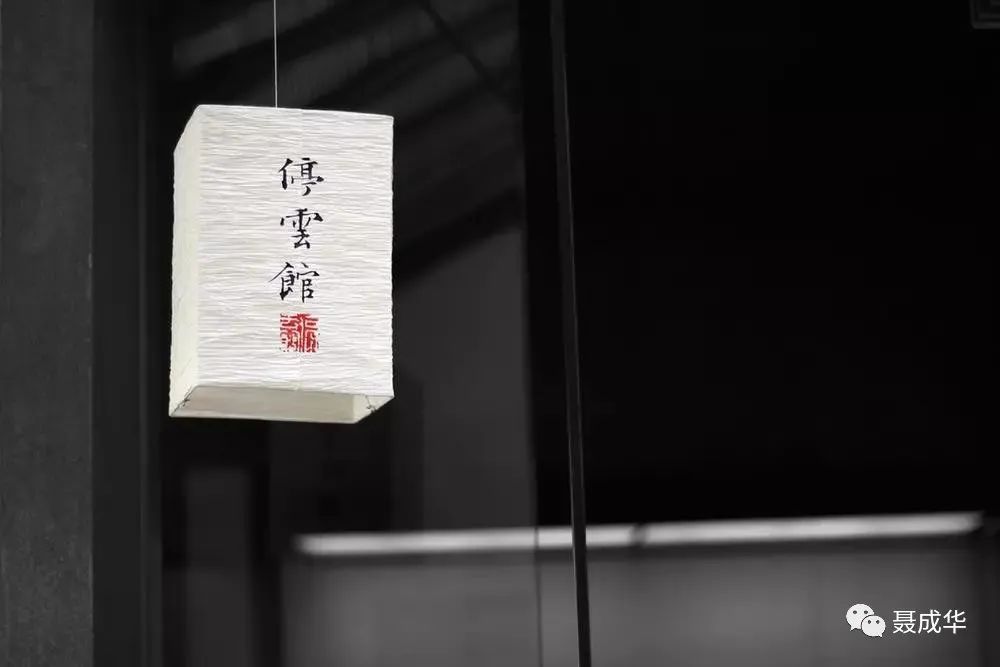 停雲館
聂成华